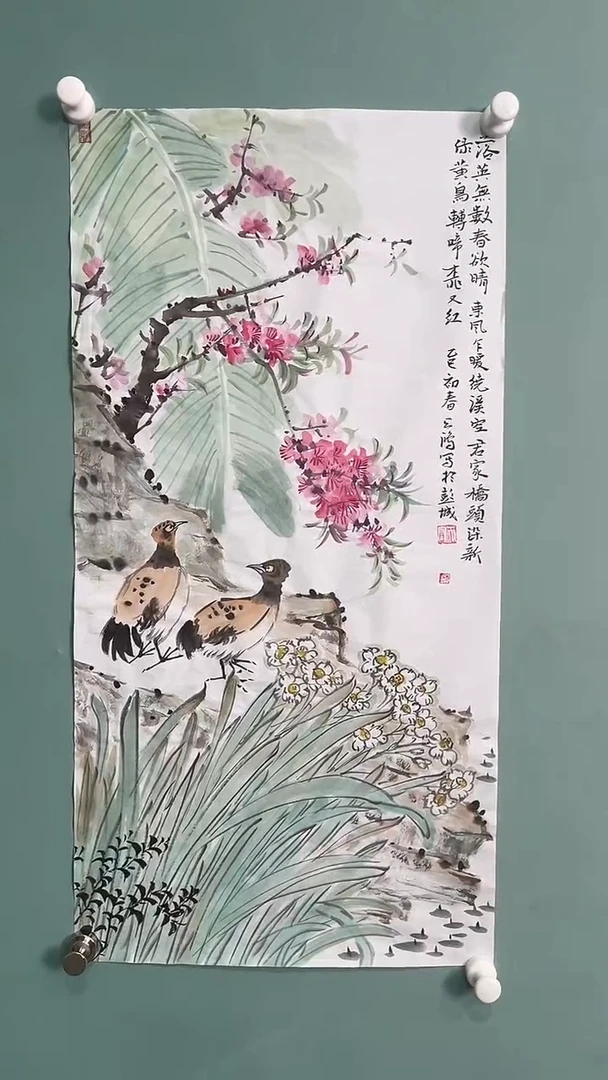 落英無數春欲晴東風乍暖繞溪空君家橋頭染新
绿黄鳥轉啼桃又红 乙巳初春 鴻写於彭城